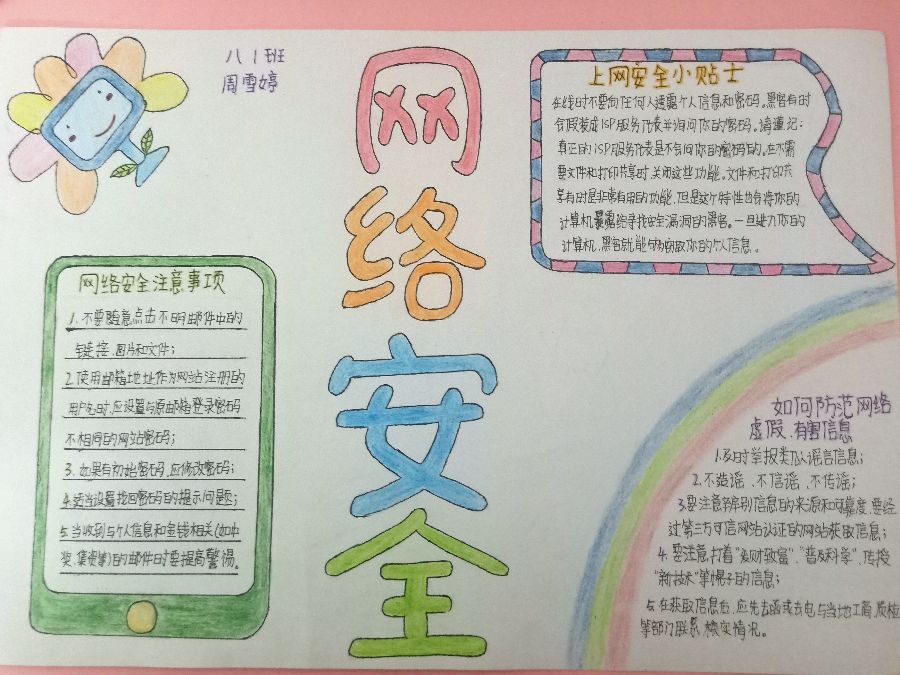 八1班
周雪婷
网络安全
上网安全小贴士
在线时不要向任何人透露个人信息和密码。黑客有时
会假装成ISP服务代表并询问你的密码。请谨记:
真正的ISP服务代表是不会问你的密码的。在不需
要文件和打印共享时,关闭这些功能。文件和打印共
享有时是非常有用的功能,但是这个特性也会将你的
计算机暴露给寻找安全漏洞的黑客。一旦进入你的
计算机,黑客就能够窃取你的个人信息。
网络安全注意事项
1.不要随意点击不明邮件中的
链接、图片和文件;
2.使用邮箱地址作为网站注册的
用户名时,应设置与原邮箱登录密码
不相同的网站密码;
3.如果有初始密码,应修改密码;
4.适当设置找回密码的提示问题;
5.当收到与个人信息和金钱相关(如中
奖、集资等)的邮件时要提高警惕。
如何防范网络
虚假、有害信息
1.及时举报类似谣言信息;
2.不造谣、不信谣、不传谣;
3.要注意辨别信息的来源和可靠度,要经
过第三方可信网站认证的网站获取信息;
4.要注意打着“发财致富”、“普及科学”、传授
“新技术”等幌子的信息;
5.在获取信息后,应先去函或去电与当地工商、质检
等部门联系,核实情况。